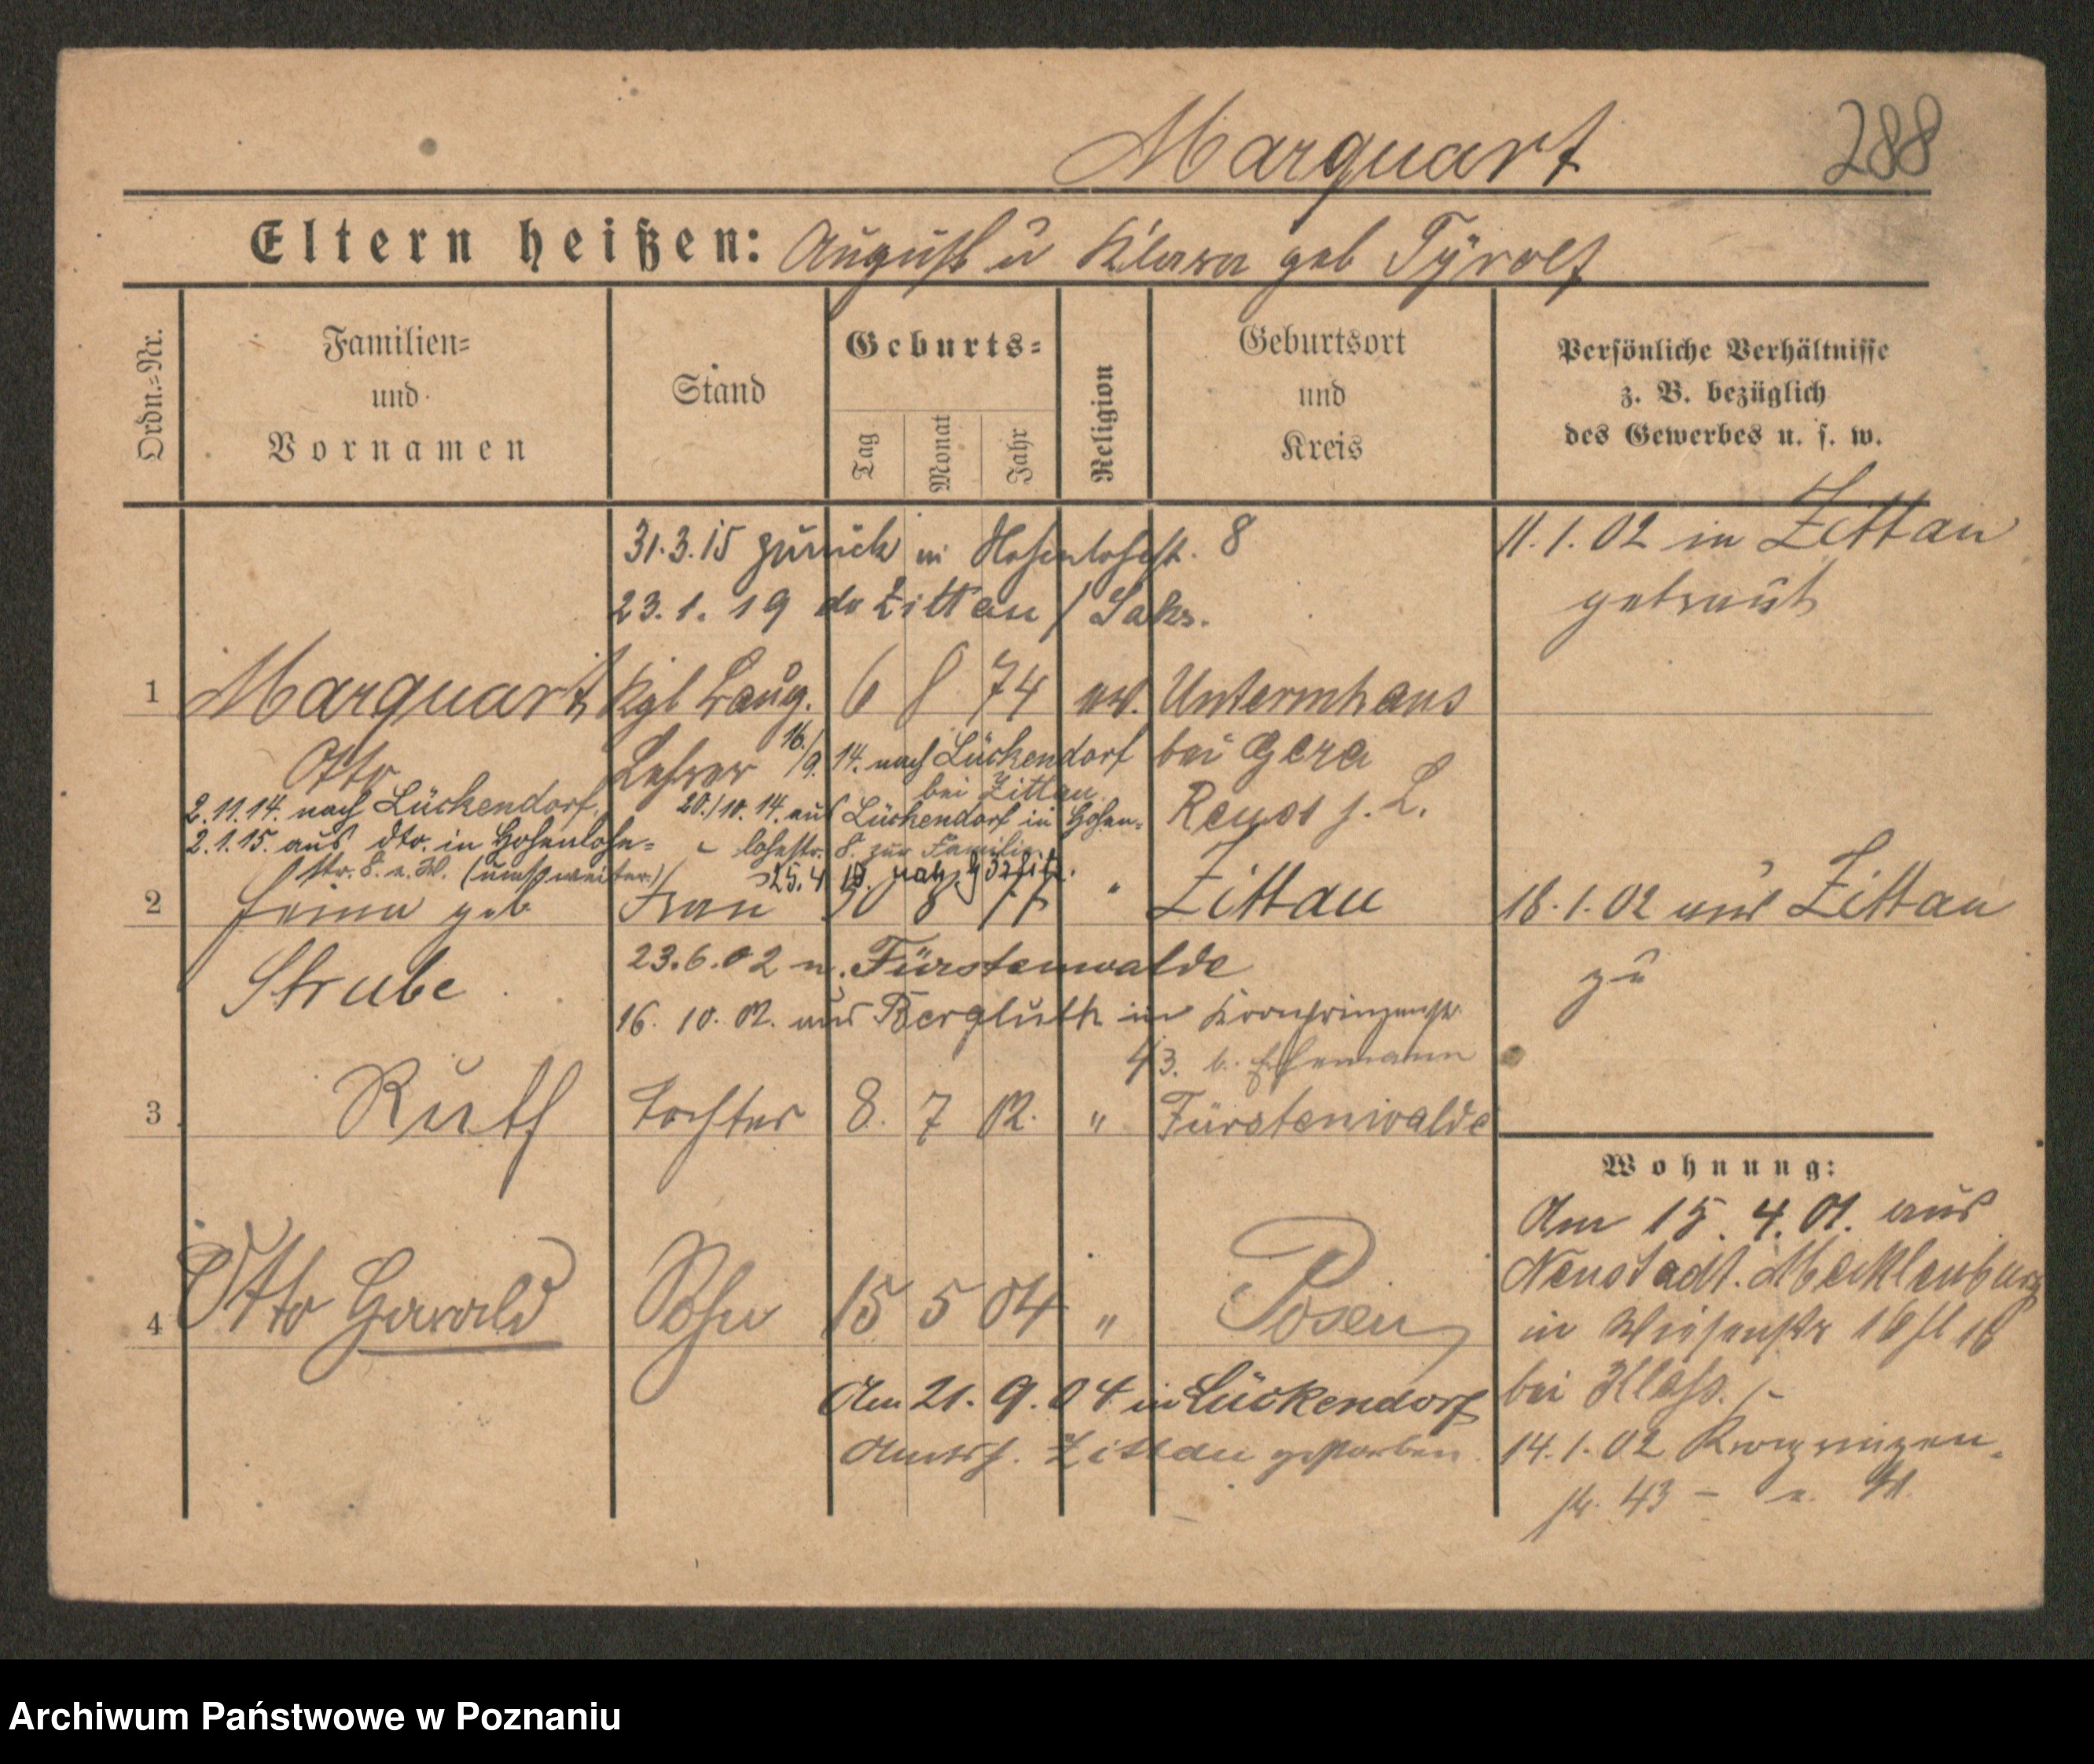 Marquart
288
Eltern heißen: August u Klara geb Tyrolf
Ordn.-Nr.
Familien-
und
Vornamen
Stand
Geburts-
Tag
Monat
Jahr
Religion
Geburtsort
und
Kreis
Persönliche Verhältnisse
z. B. bezüglich
des Gewerbes u. s. w.
31.3.15 zurück in Hohenlohestr. 8
23.1.19 do Zittau / Saks.
11.1.02 in Zittau
getraut
1 Marquart Kgl 6 8 74 ev. Untermhaus
Otto Lehrer 16./9. 14. nach Lückendorf bei Gera
bei Zittau
Reuss j. L.
2.11.14. nach Lückendorf.
20./10.14. aus Lückendorf in Hohen-
2.1.15. aus dto. in Hohenlohe-
lohestr. 8. zur Familie.
str. 8. u. W.
25.4.19. nach
2 geb Frau 8 77 " Zittau
18.1.02 aus Zittau
zu
Strube
23.6.02 n. Fürstenwalde
16.10.02. aus in Kronprinzenstr
43. b. Ehemann
3 Ruth Tochter 8. 7 02. " Fürstenwalde
Wohnung:
Am 15.4.01. aus
Neustadt. Mecklenburg
in Wiesenstr 16
bei
14.1.02 Kronprinzen-
str. 43 –
4 Otto Harald Sohn 15 5 04 " Posen
Am 21.9.04 in Lückendorf
Amtsh. Zittau gestorben.
Archiwum Państwowe w Poznaniu